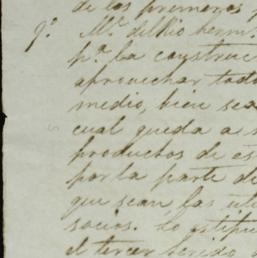 de los primeros
9.º M.r delRio herm.
p.a la construc
aprovechar todo
medio, bien sea
cual queda a s
productos de es
por la parte de
que sean, las uti
socios. Lo estipu
el tercer